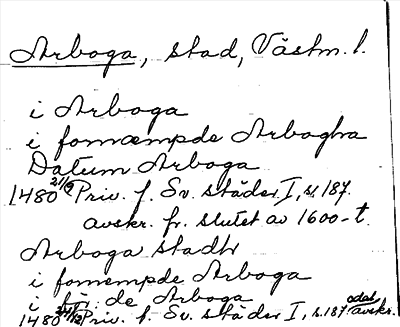 Arboga, stad, Västm. l.
i Arboga
i fornæmpde Arbogha
Datum Arboga
1480 21/9 Priv. f. Sv. städer I, s. 187.
avskr. fr. slutet av 1600-t.
Arboga stadh
i fornempde Arboga
i för: de Arboga
1480 Priv. f. Sv. städer I, s. 187 odat. avskr.